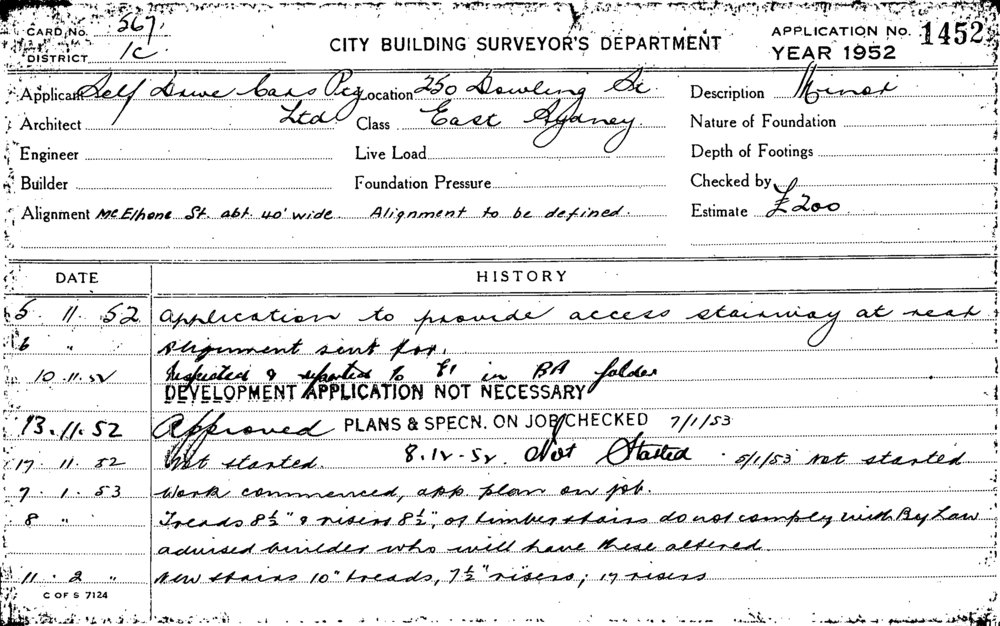 CARD No. 567.
DISTRICT 1C
CITY BUILDING SURVEYOR'S DEPARTMENT
APPLICATION No. 1452
YEAR 1952
Applicant Self Drive Cars Pty Location 250 Dowling St. Description Minor
Architect Ltd Class East Sydney Nature of Foundation
Engineer Live Load Depth of Footings
Builder Foundation Pressure Checked by
Alignment McElhone St. abt. 40' wide. Alignment to be defined. Estimate £200
DATE HISTORY
5. 11. 52 Application to provide access stairway at rear
6 " Alignment sent for.
10.11.52 Inspected & reported to in BA folder
DEVELOPMENT APPLICATION NOT NECESSARY
13.11.52 Approved PLANS & SPECN. ON JOB CHECKED 7/1/53
17. 11. 52 Not started. 8.12.52. Not Started. 5/1/53 Not started
7. 1. 53 Work commenced, app. plan on job.
8 " Treads 8½" & risers 8½", of timber stairs do not comply with By Law
advised builder who will have these altered
11. 2 " New stairs 10" treads, 7½" risers; 17 risers
C OF S 7124